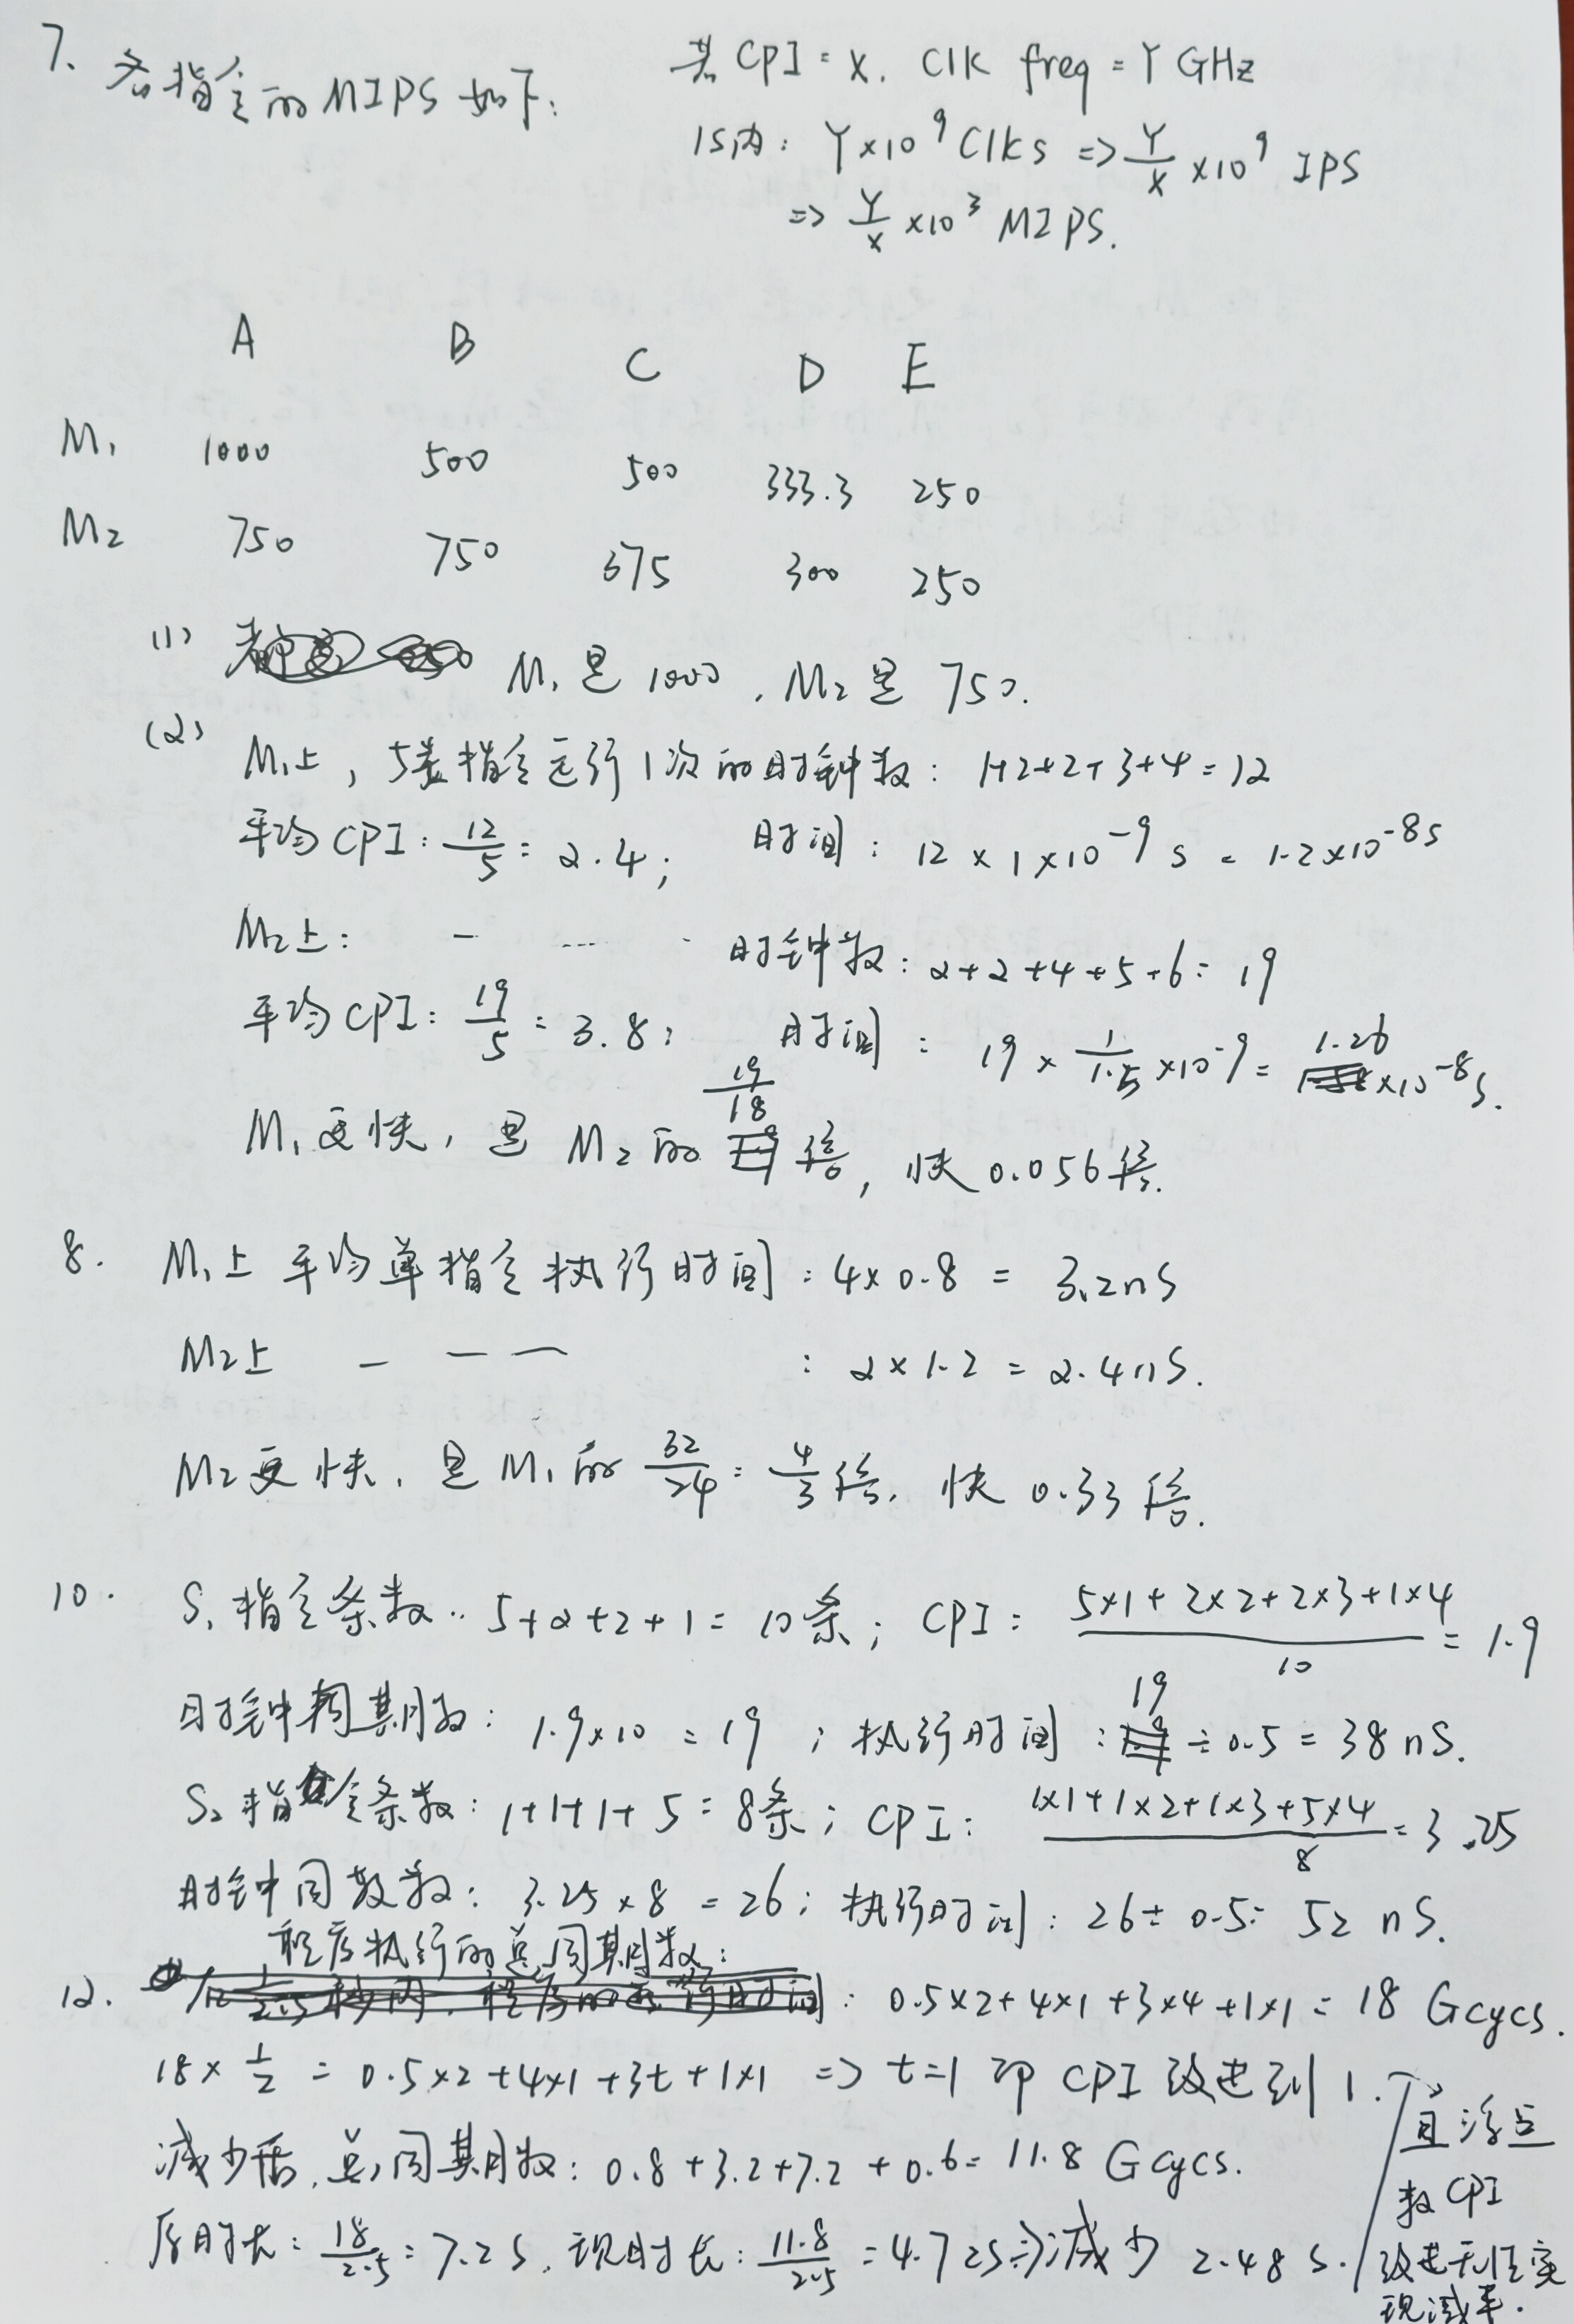 7. 各指令的MIPS如下:
某CPI = X. Clk freq = Y GHz
1S内: Y×10^9 Clks => Y/X ×10^9 IPS
=> Y/X ×10^3 MIPS.
A B C D E
M1 1000 500 500 333.3 250
M2 750 750 375 300 250
(1) M1是1000, M2是750.
(2) M1上, 5类指令运行1次的时钟数: 1+2+2+3+4=12
平均CPI: 12/5 = 2.4; 时间: 12×1×10^-9 s = 1.2×10^-8 s
M2上: — ---- 时钟数: 2+2+4+5+6= 19
平均CPI: 19/5 = 3.8; 时间: 19 × 1/1.5 ×10^-9 = 1.26×10^-8 s.
M1更快, 是M2的19/18倍, 快0.056倍.
8. M1上平均单指令执行时间: 4×0.8 = 3.2nS
M2上 — — — : 2×1.2 = 2.4nS.
M2更快, 是M1的 32/24 = 4/3倍, 快0.33倍.
10. S1指令条数: 5+2+2+1= 10条; CPI: (5×1+2×2+2×3+1×4)/10 = 1.9
时钟周期数: 1.9×10 = 19; 执行时间: 19÷0.5 = 38nS.
S2指令条数: 1+1+1+5=8条; CPI: (1×1+1×2+1×3+5×4)/8 = 3.25
时钟周数数: 3.25×8 = 26; 执行时间: 26÷0.5= 52 nS.
12. 程序执行的总周期数: 0.5×2+4×1+3×4+1×1= 18 Gcycs.
18×1/2 = 0.5×2+4×1+3t+1×1 => t=1 即CPI改进到1.
减少后, 总周期数: 0.8+3.2+7.2+0.6= 11.8 Gcycs.
原时长: 18/2.5 = 7.2S, 现时长: 11.8/2.5 = 4.72S => 减少 2.48 S.
且浮点
数CPI
改进无法实
现减半.